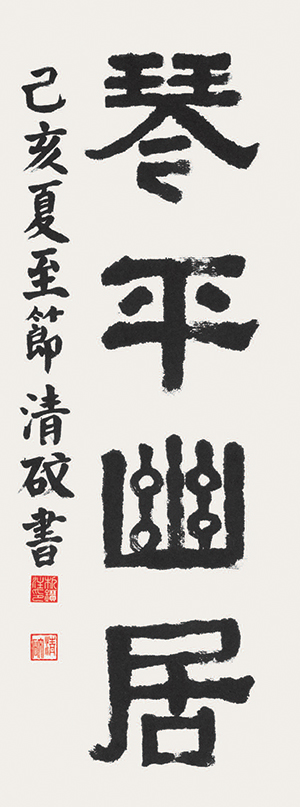 琴平幽居
己亥夏至節清砇書